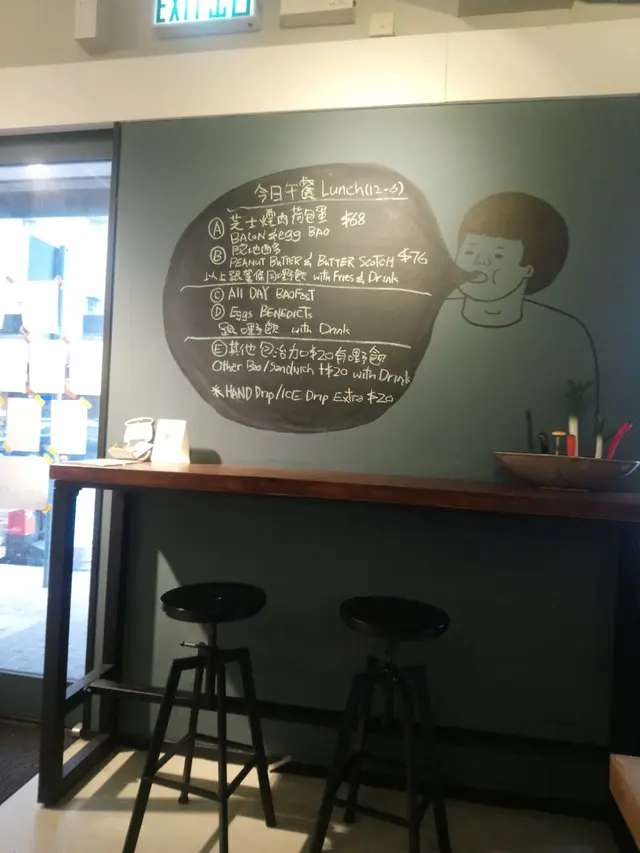 EXIT 出口
今日午餐 Lunch(12-6)
Ⓐ 芝士煙肉荷包蛋 $68
BACON & egg BAO
Ⓑ 西多 $76
PEANUT BUTTER & BUTTER SCOTCH
以上跟薯條同嘢飲 with Fries & Drink
Ⓒ All DAY BAOFAST
Ⓓ Eggs BENEDICTs
跟嘢飲 with Drink
Ⓔ 其他包治加$20有嘢飲
Other Bao/Sandwich +$20 with Drink
*HAND Drip/ICE Drip Extra $20